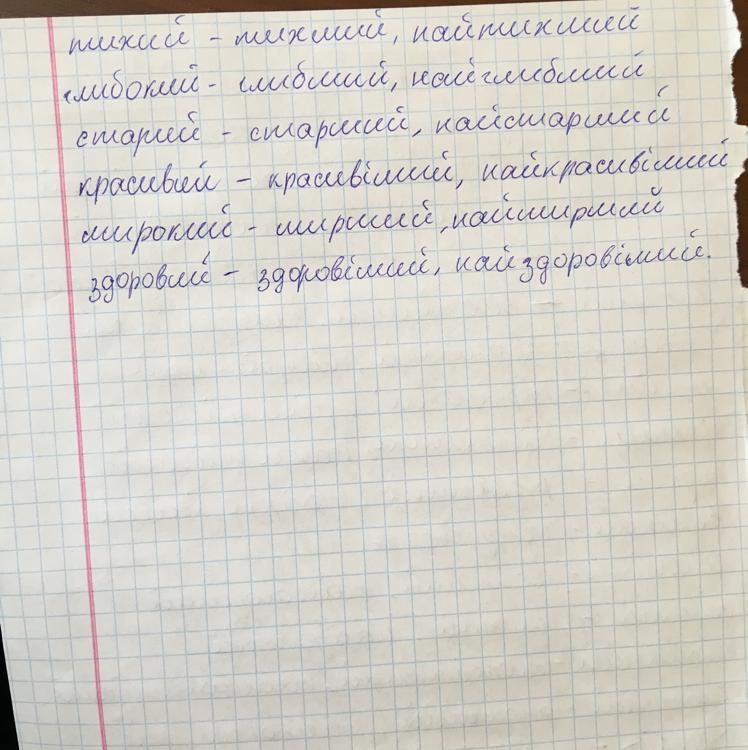 тихий - тихший, найтихший
глибокий - глибший, найглибший
старий - старший, найстарший
красивий - красивіший, найкрасивіший
широкий - ширший, найширший
здоровий - здоровіший, найздоровіший.